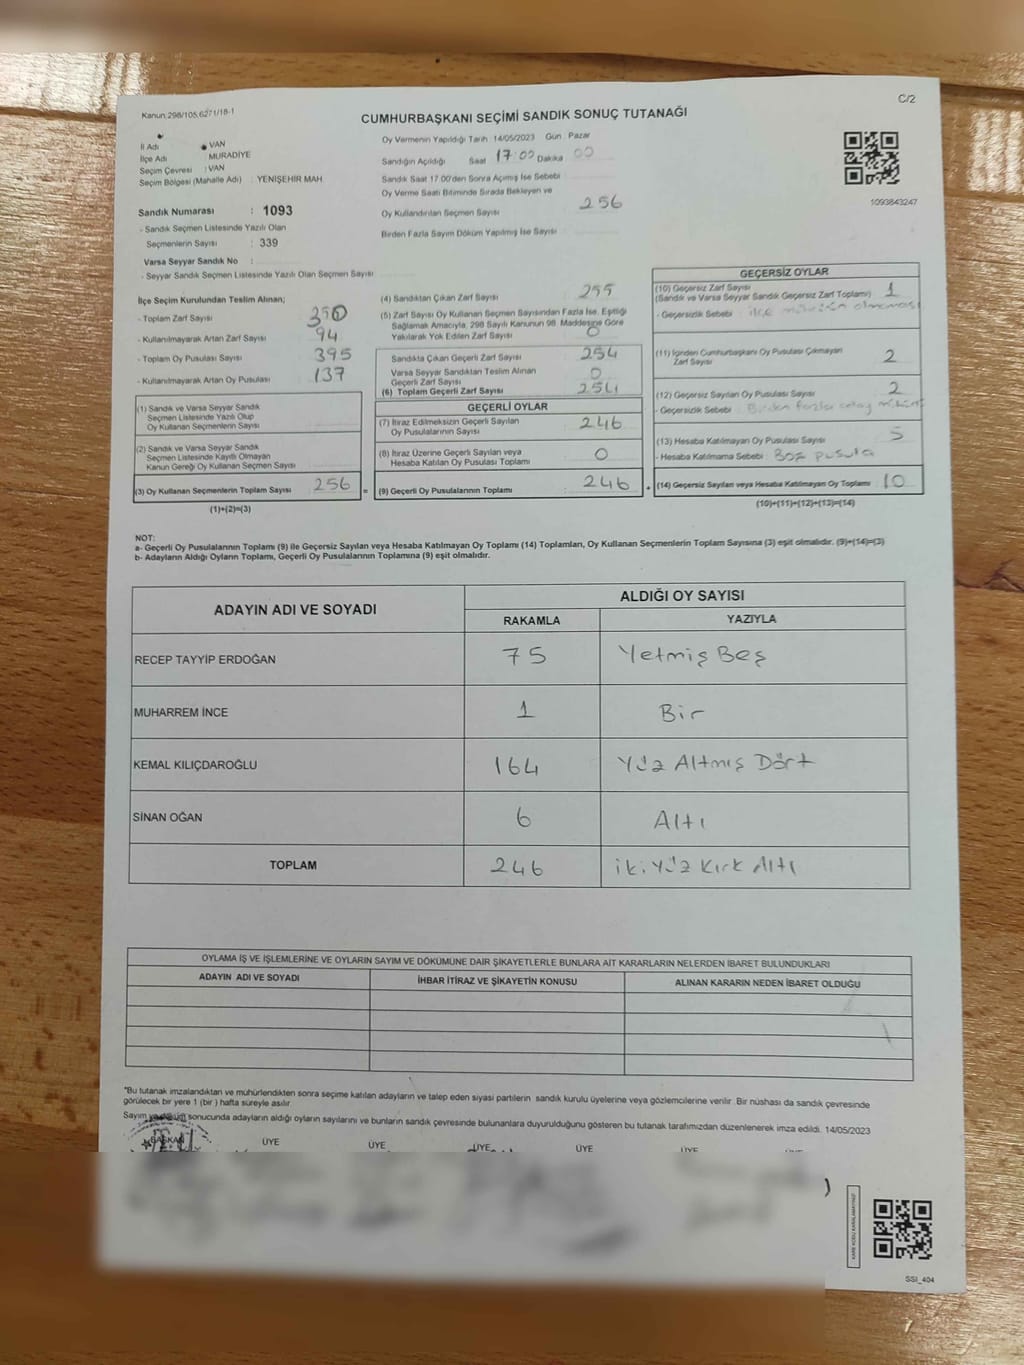 Kanun:298/105,6271/18-1
C/2
CUMHURBAŞKANI SEÇİMİ SANDIK SONUÇ TUTANAĞI
İl Adı : VAN
İlçe Adı MURADİYE
Seçim Çevresi : VAN
Seçim Bölgesi (Mahalle Adı) : YENİŞEHİR MAH
Sandık Numarası : 1093
- Sandık Seçmen Listesinde Yazılı Olan
Seçmenlerin Sayısı : 339
Varsa Seyyar Sandık No :
- Seyyar Sandık Seçmen Listesinde Yazılı Olan Seçmen Sayısı
Oy Vermenin Yapıldığı Tarih 14/05/2023 Gün : Pazar
Sandığın Açıldığı Saat 17:00 Dakika 00
Sandık Saat 17.00'den Sonra Açılmış İse Sebebi
Oy Verme Saati Bitiminde Sırada Bekleyen ve
Oy Kullandırılan Seçmen Sayısı 256
Birden Fazla Sayım Döküm Yapılmış İse Sayısı
1093843247
İlçe Seçim Kurulundan Teslim Alınan;
- Toplam Zarf Sayısı 350
- Kullanılmayarak Artan Zarf Sayısı 94
- Toplam Oy Pusulası Sayısı 395
- Kullanılmayarak Artan Oy Pusulası 137
(1) Sandık ve Varsa Seyyar Sandık
Seçmen Listesinde Yazılı Olup
Oy Kullanan Seçmenlerin Sayısı
(2) Sandık ve Varsa Seyyar Sandık
Seçmen Listesinde Kayıtlı Olmayan
Kanun Gereği Oy Kullanan Seçmen Sayısı
(3) Oy Kullanan Seçmenlerin Toplam Sayısı 256 =
(1)+(2)=(3)
(4) Sandıktan Çıkan Zarf Sayısı 255
(5) Zarf Sayısı Oy Kullanan Seçmen Sayısından Fazla İse, Eşitliği
Sağlamak Amacıyla, 298 Sayılı Kanunun 98. Maddesine Göre
Yakılarak Yok Edilen Zarf Sayısı 0
Sandıkta Çıkan Geçerli Zarf Sayısı 254
Varsa Seyyar Sandıktan Teslim Alınan
Geçerli Zarf Sayısı 0
(6) Toplam Geçerli Zarf Sayısı 254
GEÇERLİ OYLAR
(7) İtiraz Edilmeksizin Geçerli Sayılan
Oy Pusulalarının Sayısı 246
(8) İtiraz Üzerine Geçerli Sayılan veya
Hesaba Katılan Oy Pusulası Toplamı 0
(9) Geçerli Oy Pusulalarının Toplamı 246 +
GEÇERSİZ OYLAR
(10) Geçersiz Zarf Sayısı
(Sandık ve Varsa Seyyar Sandık Geçersiz Zarf Toplamı) 1
- Geçersizlik Sebebi : ilçe mührünün olmaması
(11) İçinden Cumhurbaşkanı Oy Pusulası Çıkmayan
Zarf Sayısı 2
(12) Geçersiz Sayılan Oy Pusulası Sayısı 2
- Geçersizlik Sebebi : Birden fazla
(13) Hesaba Katılmayan Oy Pusulası Sayısı 5
- Hesaba Katılmama Sebebi : Boş pusula
(14) Geçersiz Sayılan veya Hesaba Katılmayan Oy Toplamı 10
(10)+(11)+(12)+(13)=(14)
NOT:
a- Geçerli Oy Pusulalarının Toplamı (9) ile Geçersiz Sayılan veya Hesaba Katılmayan Oy Toplamı (14) Toplamları, Oy Kullanan Seçmenlerin Toplam Sayısına (3) eşit olmalıdır. (9)+(14)=(3)
b- Adayların Aldığı Oyların Toplamı, Geçerli Oy Pusulalarının Toplamına (9) eşit olmalıdır.
ADAYIN ADI VE SOYADI ALDIĞI OY SAYISI
RAKAMLA YAZIYLA
RECEP TAYYİP ERDOĞAN 75 Yetmiş Beş
MUHARREM İNCE 1 Bir
KEMAL KILIÇDAROĞLU 164 Yüz Altmış Dört
SİNAN OĞAN 6 Altı
TOPLAM 246 iki Yüz Kırk Altı
OYLAMA İŞ VE İŞLEMLERİNE VE OYLARIN SAYIM VE DÖKÜMÜNE DAİR ŞİKAYETLERLE BUNLARA AİT KARARLARIN NELERDEN İBARET BULUNDUKLARI
ADAYIN ADI VE SOYADI İHBAR İTİRAZ VE ŞİKAYETİN KONUSU ALINAN KARARIN NEDEN İBARET OLDUĞU
*Bu tutanak imzalandıktan ve mühürlendikten sonra seçime katılan adayların ve talep eden siyasi partilerin sandık kurulu üyelerine veya gözlemcilerine verilir. Bir nüshası da sandık çevresinde
görülecek bir yere 1 (bir ) hafta süreyle asılır.
Sayım ve döküm sonucunda adayların aldığı oyların sayılarını ve bunların sandık çevresinde bulunanlara duyurulduğunu gösteren bu tutanak tarafımızdan düzenlenerek imza edildi. 14/05/2023
BAŞKAN ÜYE ÜYE ÜYE ÜYE ÜYE
KARE KODU KARALAMAYINIZ!
SSI_404